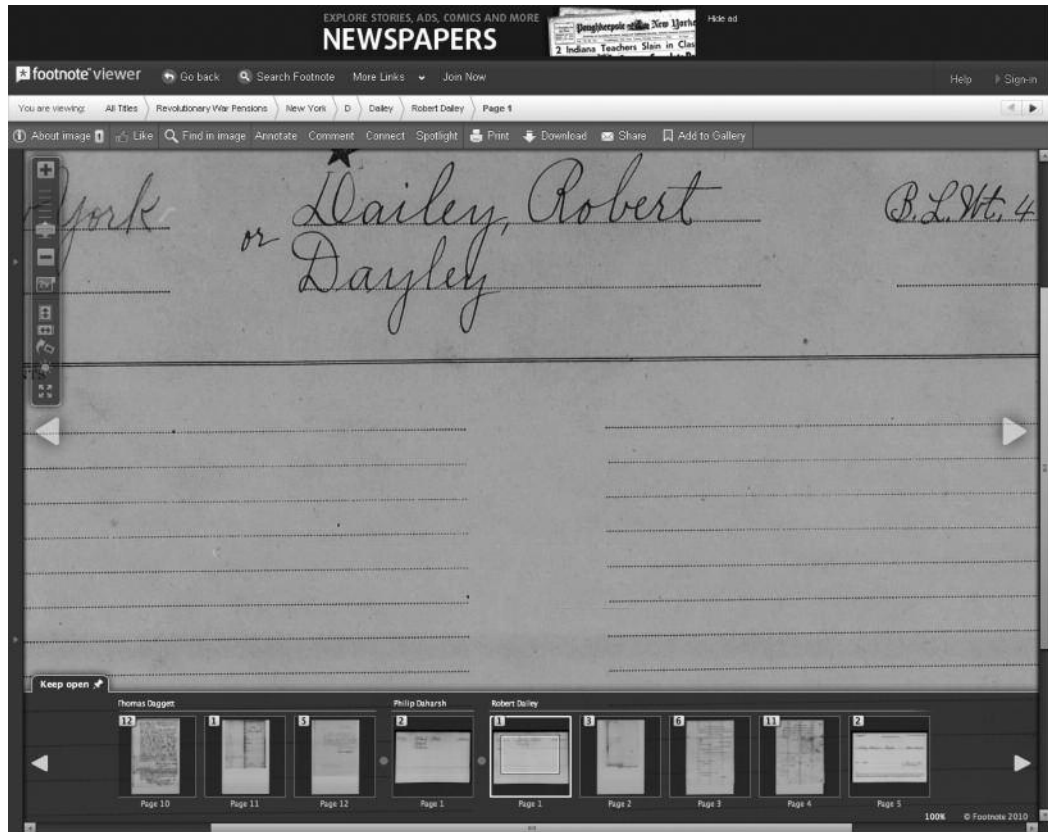 EXPLORE STORIES, ADS, COMICS AND MORE
NEWSPAPERS
Poughkeepsie New Yorke
2 Indiana Teachers Slain in Clas
Hide ad
footnote viewer Go back Search Footnote More Links Join Now Help Sign-in
You are viewing: All Titles Revolutionary War Pensions New York D Dailey Robert Dailey Page 1
About image Like Find in image Annotate Comment Connect Spotlight Print Download Share Add to Gallery
York Dailey, Robert B. L. Wt. 4
or Dayley
Keep open
Thomas Daggett Philip Daharsh Robert Dailey
12 1 5 2 1 3 6 11 2
Page 10 Page 11 Page 12 Page 1 Page 1 Page 2 Page 3 Page 4 Page 5
100% © Footnote 2010